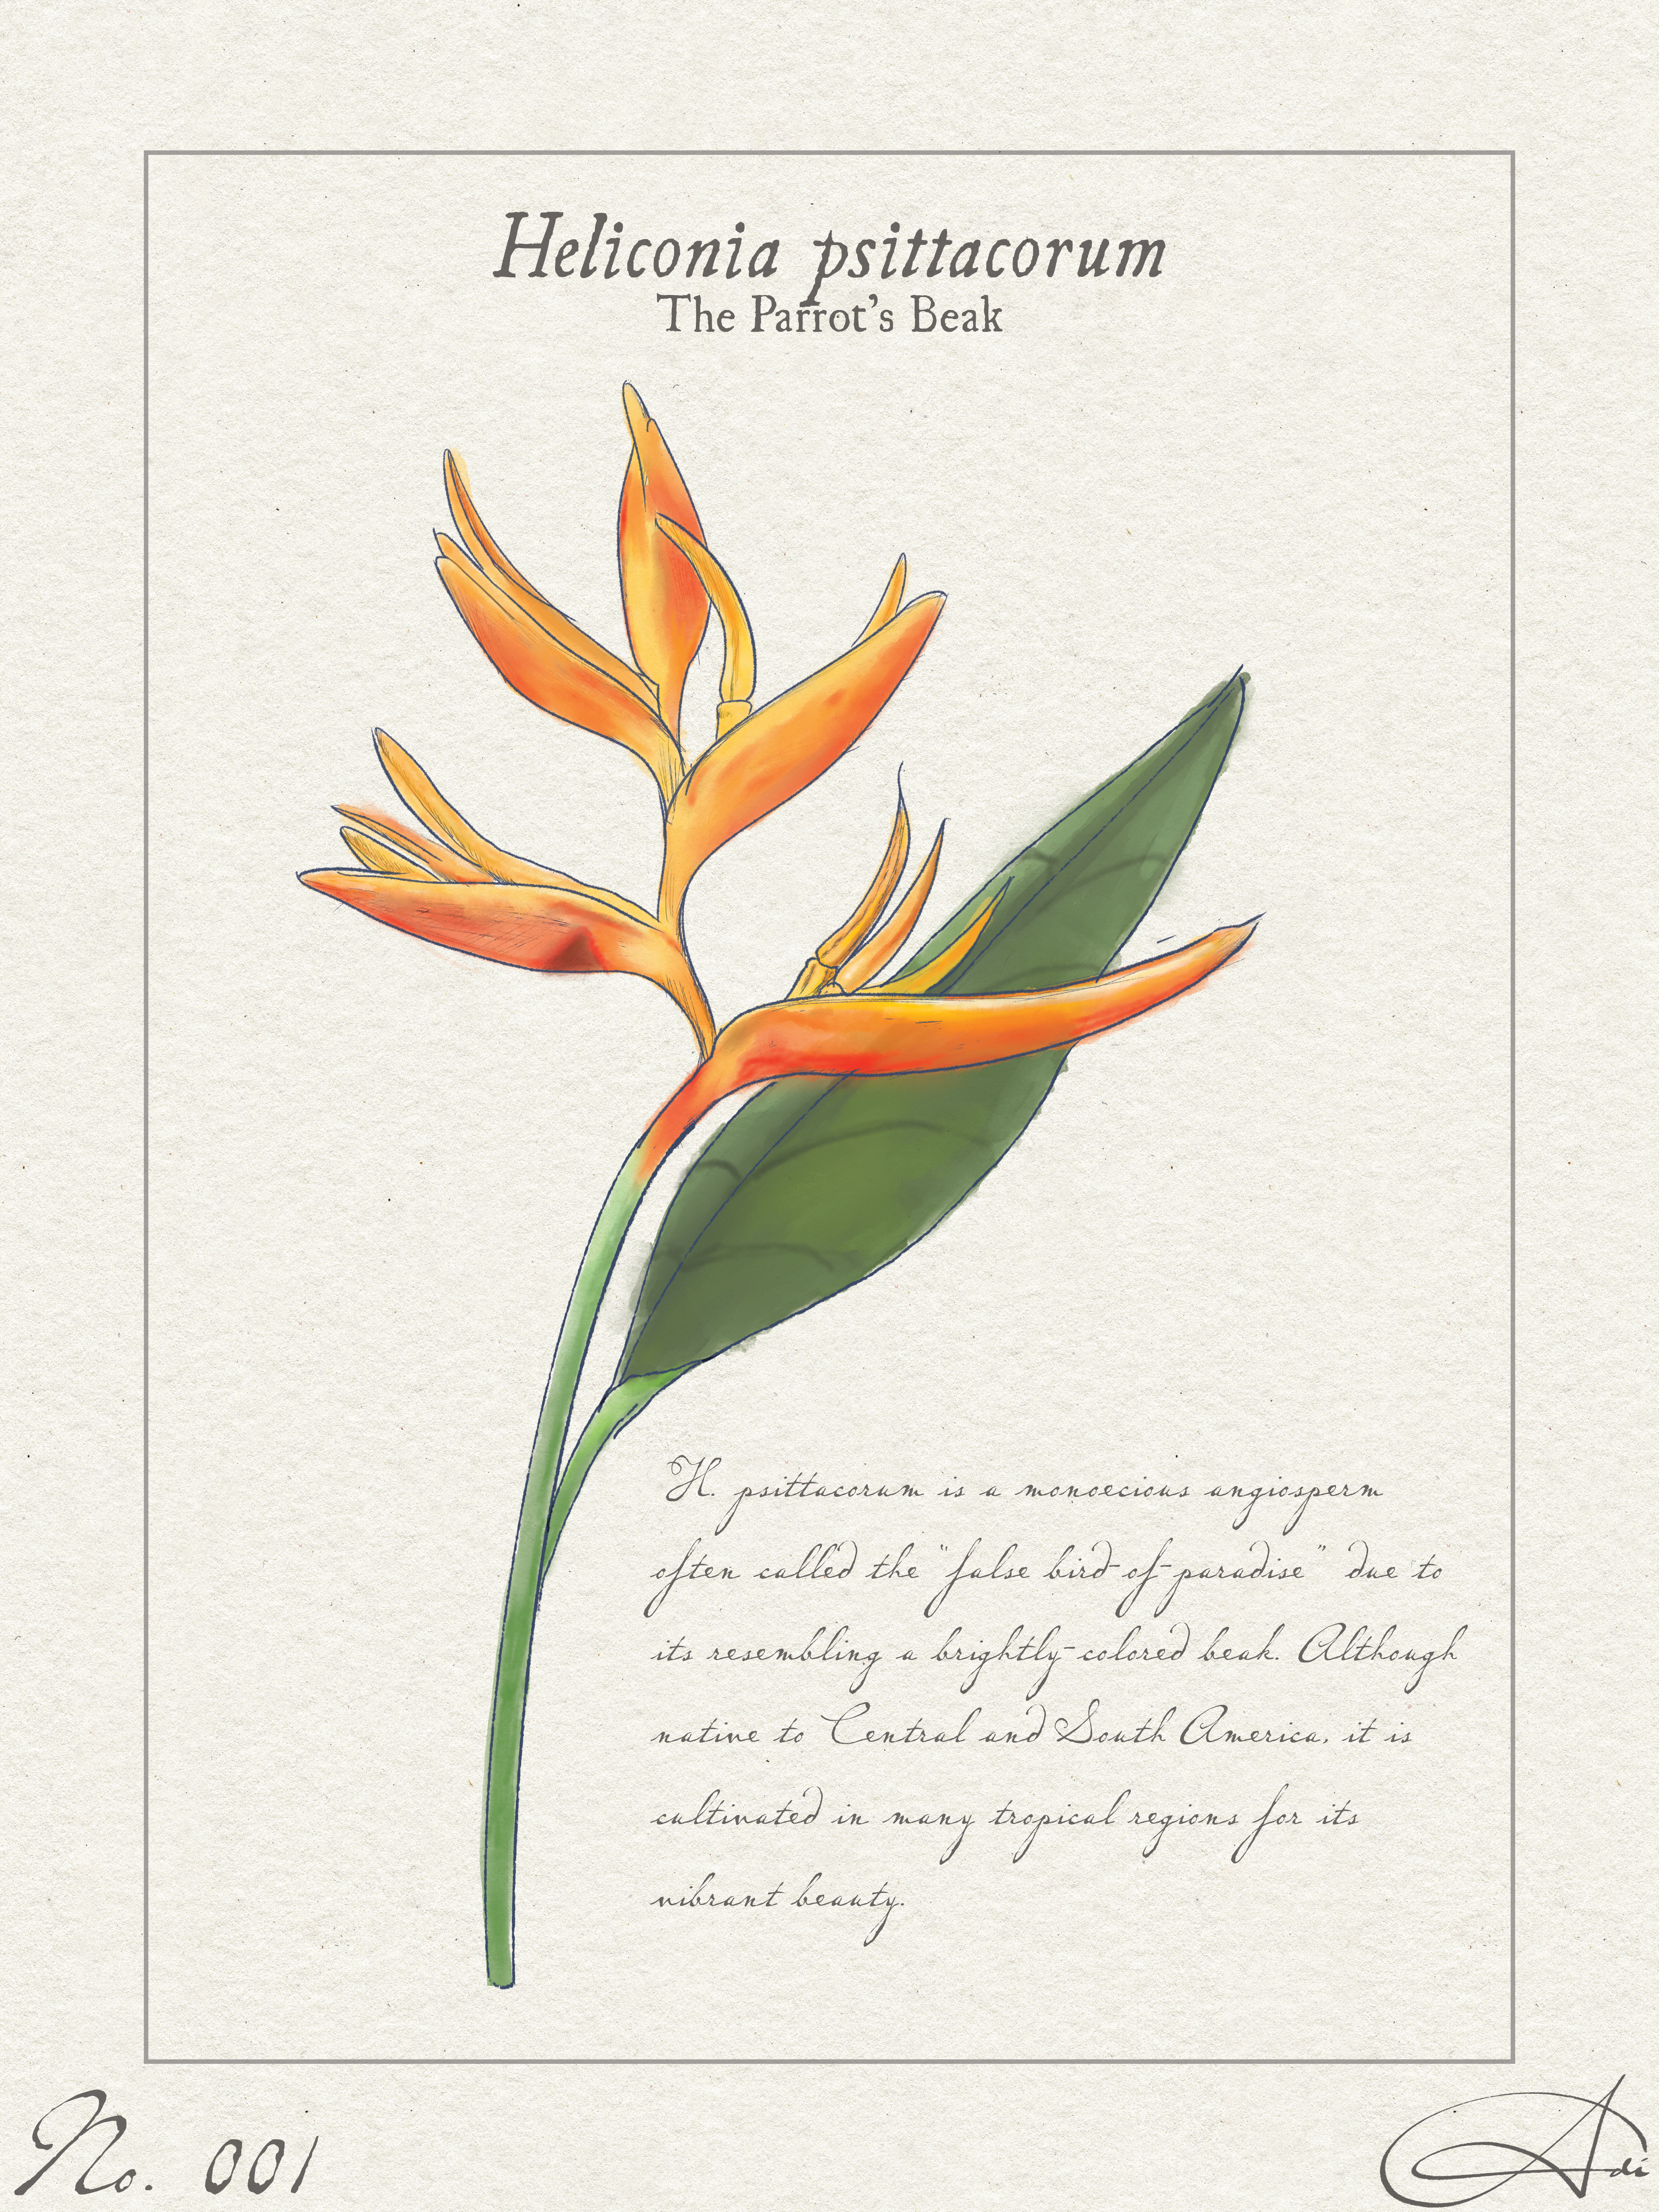 Heliconia psittacorum
The Parrot's Beak
H. psittacorum is a monoecious angiosperm
often called the "false bird-of-paradise" due to
its resembling a brightly-colored beak. Although
native to Central and South America, it is
cultivated in many tropical regions for its
vibrant beauty.
No. 001
Adi